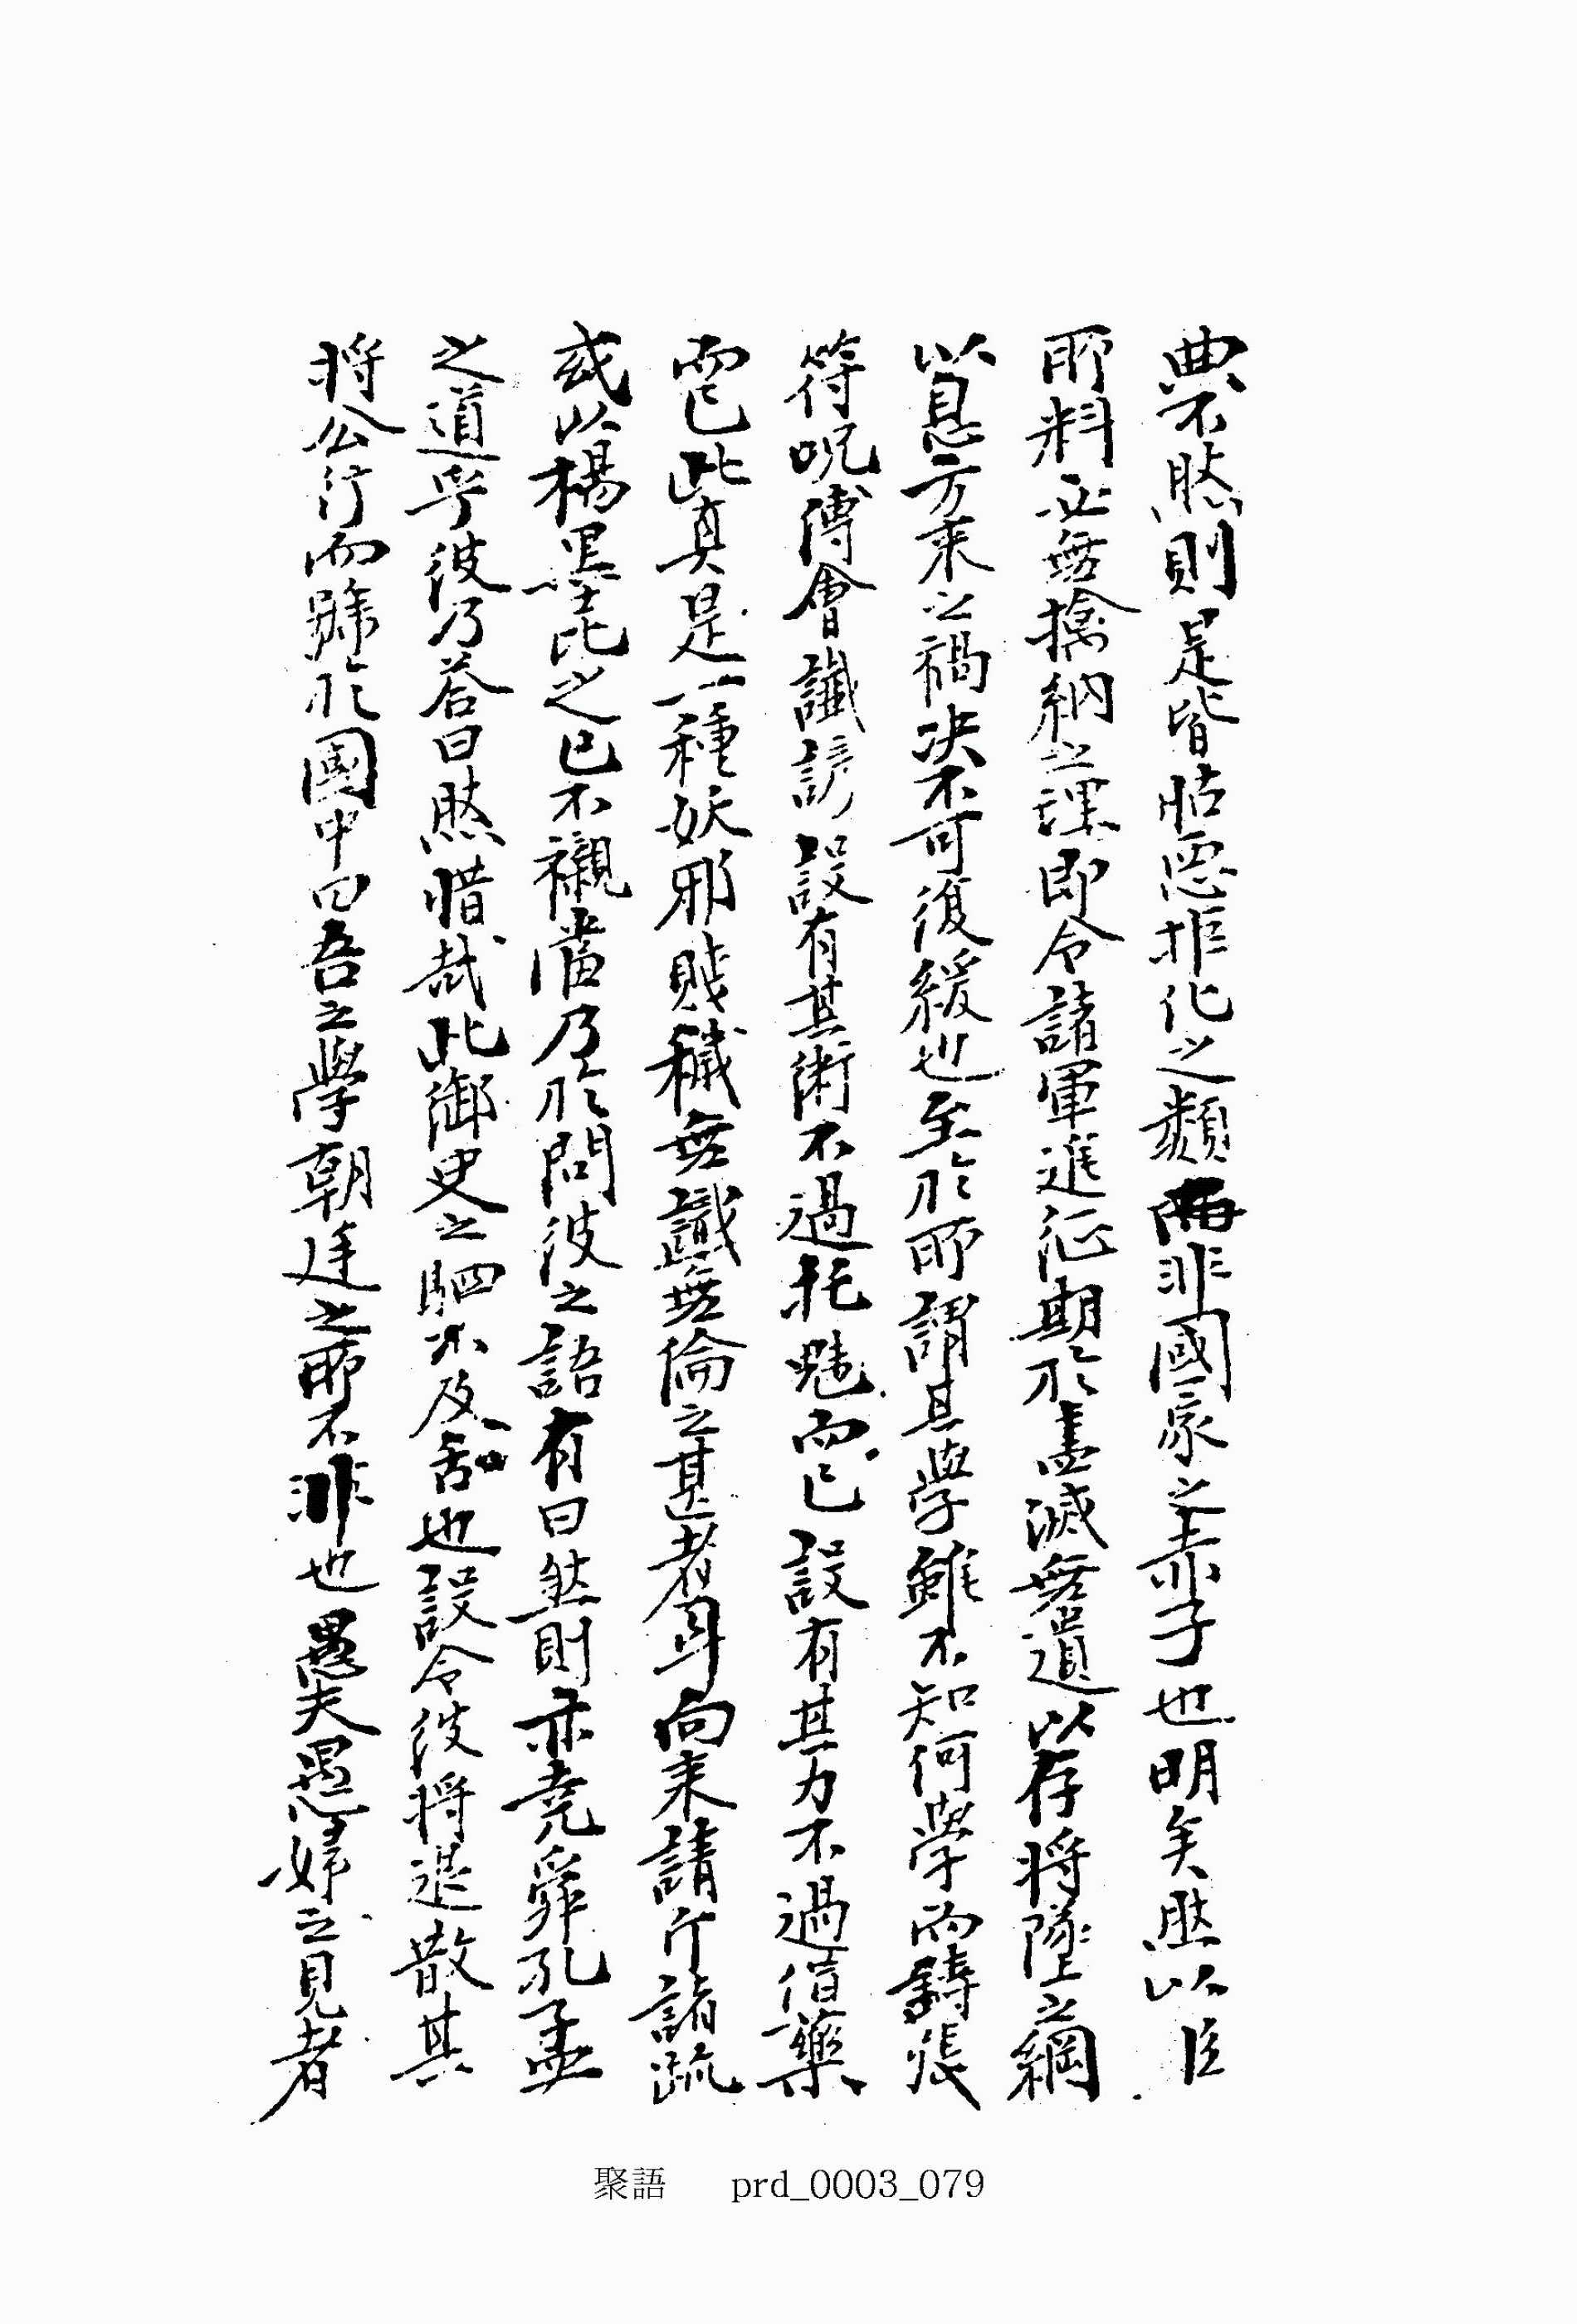 典不然則是皆怙惡拒化之類而非國家之赤子也明矣然以臣
所料必無擒納之理即令諸軍進征期於盡滅無遺以存將墜之綱
以息方來之禍決不可復緩也至於所謂其學雖不知何學而譸張
符呪傅會讖諺設有其術不過托魅而已設有其力不過借藥
而已此眞是一種妖邪賤穢無識無倫之甚者耳向來請斤諸疏
或以楊墨比之已不襯當乃於問彼之語有曰然則亦堯舜孔孟
之道乎彼乃答曰然惜哉此御史之駟不及舌也設令彼將退散其
將公行而歸於國中曰吾之學朝廷之所不非也愚夫愚婦之見者
聚語 prd_0003_079